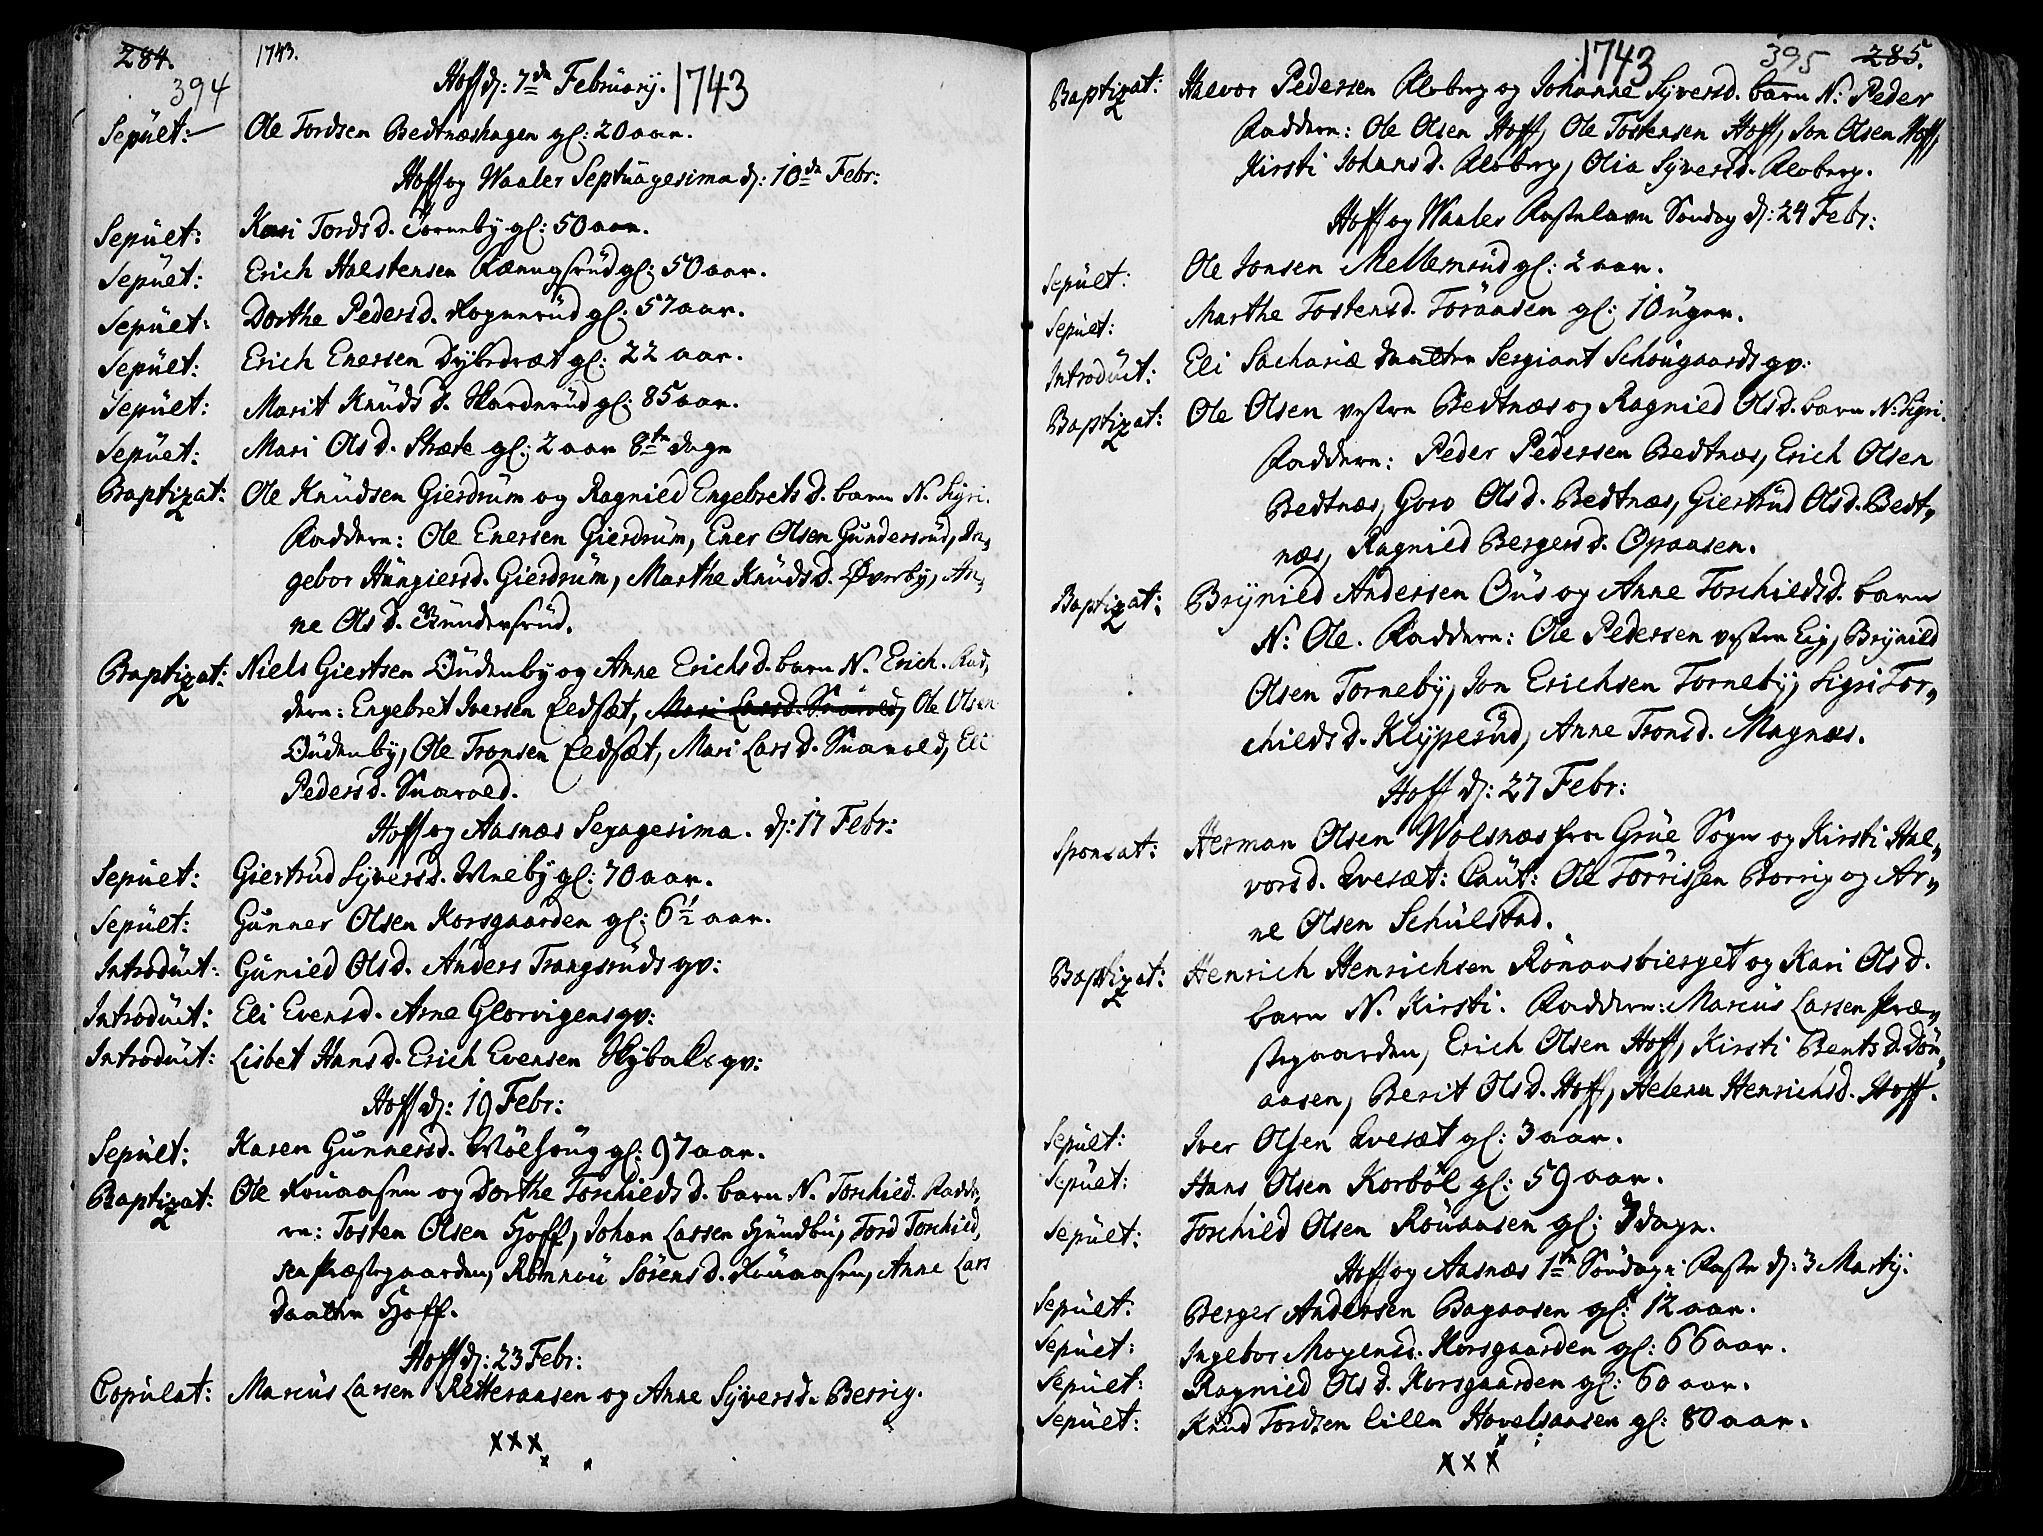 284. 1743.
394
Hoff d: 7de Februarij. 1743
Sepult: Ole Tordsen Bedtnæshagen gl: 20 aar.
Hoff og Waaler Septuagesima d: 10de Febr:
Sepult: Kari Tordsd. Torneby gl: 50 aar.
Sepult: Erich Halstensen gl: 50 aar.
Sepult: Dorthe Pedersd. Rognerud gl: 57 aar.
Sepult: Erich Enersen Dybedræt gl: 22 aar.
Sepult: Marit Knudsd. Skarderud gl: 85 aar.
Sepult: Mari Olsd. gl: 2 aar 8te dage
Baptizat: Ole Knudsen Gierdrum og Ragnild Engebretsd. barn N. Sigri.
Faddere: Ole Enersen Gierdrum, Ener Olsen Gundersrud, In,,
gebor Hungiersd. Gierdrum, Marthe Knudsd. Øverby, An,,
ne Olsd. Gundersrud.
Baptizat: Niels Giertsen Oudenby og Anne Erichsd. barn N. Erich. Fad,,
dere: Engebret Iversen Eedsæt, Mari Larsd. Snarold, Ole Olsen
Oudenby, Ole Tronsen Eedsæt, Mari Larsd. Snarold, Eli
Pedersd. Snarold.
Hoff og Aasnæs Sexagesima. d: 17 Febr:
Sepult: Giertrud Syversd. gl: 70 aar.
Sepult: Gunner Olsen Korsgaarden gl: 6½ aar.
Introduct: Gunild Olsd. Anders Trangsruds qv:
Introduct: Eli Evensd. Arne Glorvigens qv:
Introduct: Lisbet Hansd. Erich Evensen Skybaks qv:
Hoff d: 19 Febr:
Sepult: Karen Gunnersd. gl: 97 aar.
Baptizat: Ole Rouaasen og Dorthe Torchildsd. barn N. Torchild. Fadde,,
re: Tosten Olsen Hoff, Johan Larsen Hundbu, Tord Torchild,,
sen Præstegaarden, Rønnou Sørensd. Rouaasen, Anne Lars
daatter Hoff.
Hoff d: 23 Febr:
Copulat: Marcus Larsen Retteraasen og Anne Syversd. Berrig.
xxx
1743 395 285.
Baptizat: Halvor Pedersen Aloberg og Johanne Syversd. barn N: Peder
Faddere: Ole Olsen Hoff, Ole Tostensen Hoff, Jon Olsen Hoff,
Kirsti Johansd. Aloberg, Olia Syversd. Aloberg.
Hoff og Waaler Fastelavn Søndag d: 24 Febr:
Sepult: Ole Jonsen Mellemrud gl: 2 aar.
Sepult: Marthe Tostensd. Toraasen gl: 10 uger.
Introduct: Eli Sachariæ daatter Sergiant Schougaards qv:
Baptizat: Ole Olsen vestre Bedtnæs og Ragnild Olsd. barn N: Sigri.
Faddere: Peder Pedersen Bedtnæs, Erich Olsen
Bedtnæs, Goro Olsd. Bedtnæs, Giertrud Olsd. Bedt,,
næs, Ragnild Bergersd. Opaasen.
Baptizat: Brynild Andersen Ous og Anne Torchildsd. barn
N: Ole. Faddere: Ole Pedersen vestre Eig, Brynild
Olsen Torneby, Jon Erichsen Torneby, Sigri Tor,,
childsd. Klyperud, Anne Tronsd. Magnæs.
Hoff d: 27 Febr:
Sponsat: Herman Olsen Wolsnæs fra Grue Sogn og Kirsti Hal,,
vorsd. Qvesæt: Caut: Ole Torrissen Borrig og Ar,,
ne Olsen Schulstad.
Baptizat: Henrich Henrichsen Rønaasbierget og Kari Olsd.
barn N. Kirsti. Faddere: Marcus Larsen Præ,,
stegaarden, Erich Olsen Hoff, Kirsti Bentsd. Døn,,
aasen, Berit Olsd. Hoff, Helena Henrichsd. Hoff.
Sepult: Iver Olsen Qvesæt gl: 3 aar.
Sepult: Hans Olsen Korbøl gl: 59 aar.
Sepult: Torchild Olsen Rouaasen gl: 7 dage.
Hoff og Aasnæs 1te Søndag i Faste d: 3 Martij:
Sepult: Berger Andersen Bagaasen gl: 12 aar.
Sepult: Ingebor Mogensd. Korsgaarden gl: 66 aar.
Sepult: Ragnild Olsd. Korsgaarden gl: 60 aar.
Sepult: Knud Tordsen lille Hovelsaasen gl: 80 aar.
xxx